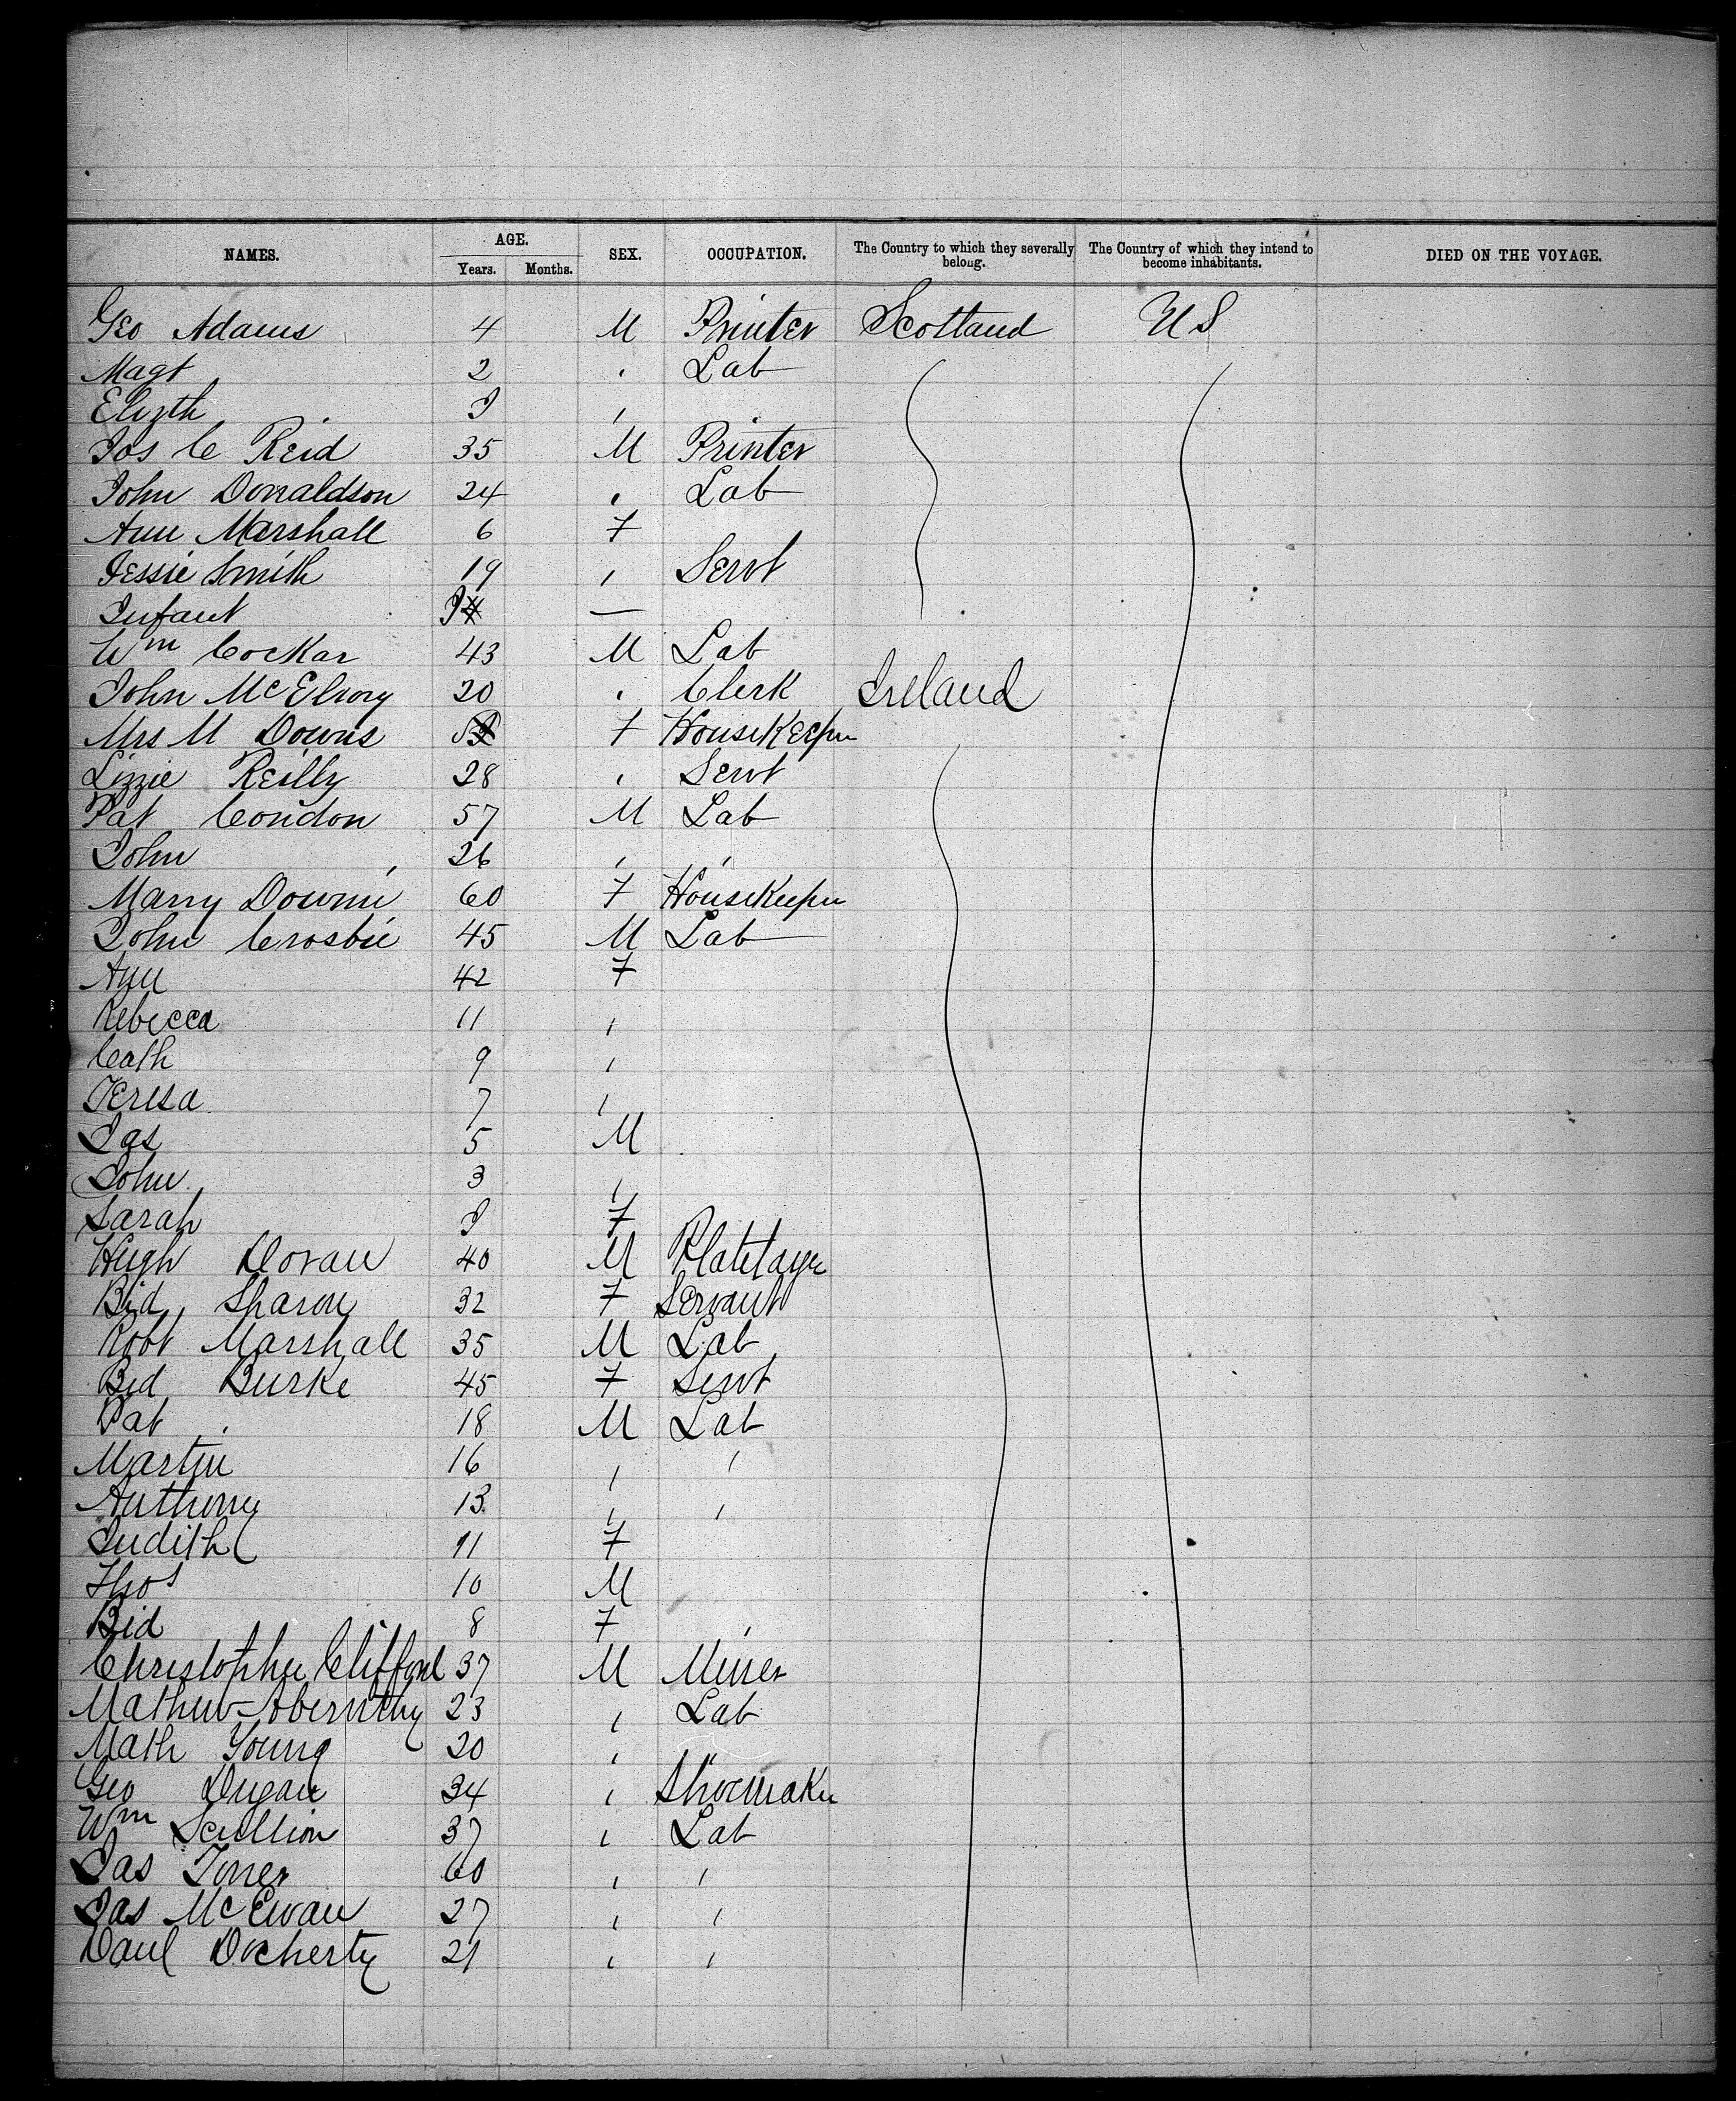 NAMES. AGE. SEX. OCCUPATION. The Country to which they severally belong. The Country of which they intend to become inhabitants. DIED ON THE VOYAGE.
Years. Months.
Geo Adams 4 M Printer Scotland U S
Magt 2 " Lab
Elizth I "
Jos C Reid 35 M Printer
John Donaldson 24 " Lab
Ann Marshall 6 F
Jessie Smith 19 " Servt
Infant I —
Wm Cockar 43 M Lab
John McElvory 20 " Clerk Ireland
Mrs M Downs F HouseKeeper
Lizzie Reilly 28 " Servt
Pat Condon 57 M Lab
John " 26 " "
Marry Downie 60 F HouseKeeper
John Crosbie 45 M Lab
Ann 42 F
Rebecca 11 "
Cath 9 "
Teresa 7 "
Jas 5 M
John 3 "
Sarah I F
Hugh Doran 40 M Platelayer
Bid Sharon 32 F Servant
Robt Marshall 35 M Lab
Bid Burke 45 F Servt
Pat " 18 M Lab
Martin 16 " "
Anthony 13 " "
Judith 11 F
Thos 10 M
Bid 8 F
Christopher Clifford 37 M Miner
Mathew Abernthy 23 " Lab
Math Young 20 " "
Geo Dugan 34 " Shoemaker
Wm Scullion 37 " Lab
Jas Torrer 60 " "
Jas McEwan 27 " "
Danl Docherty 21 " "